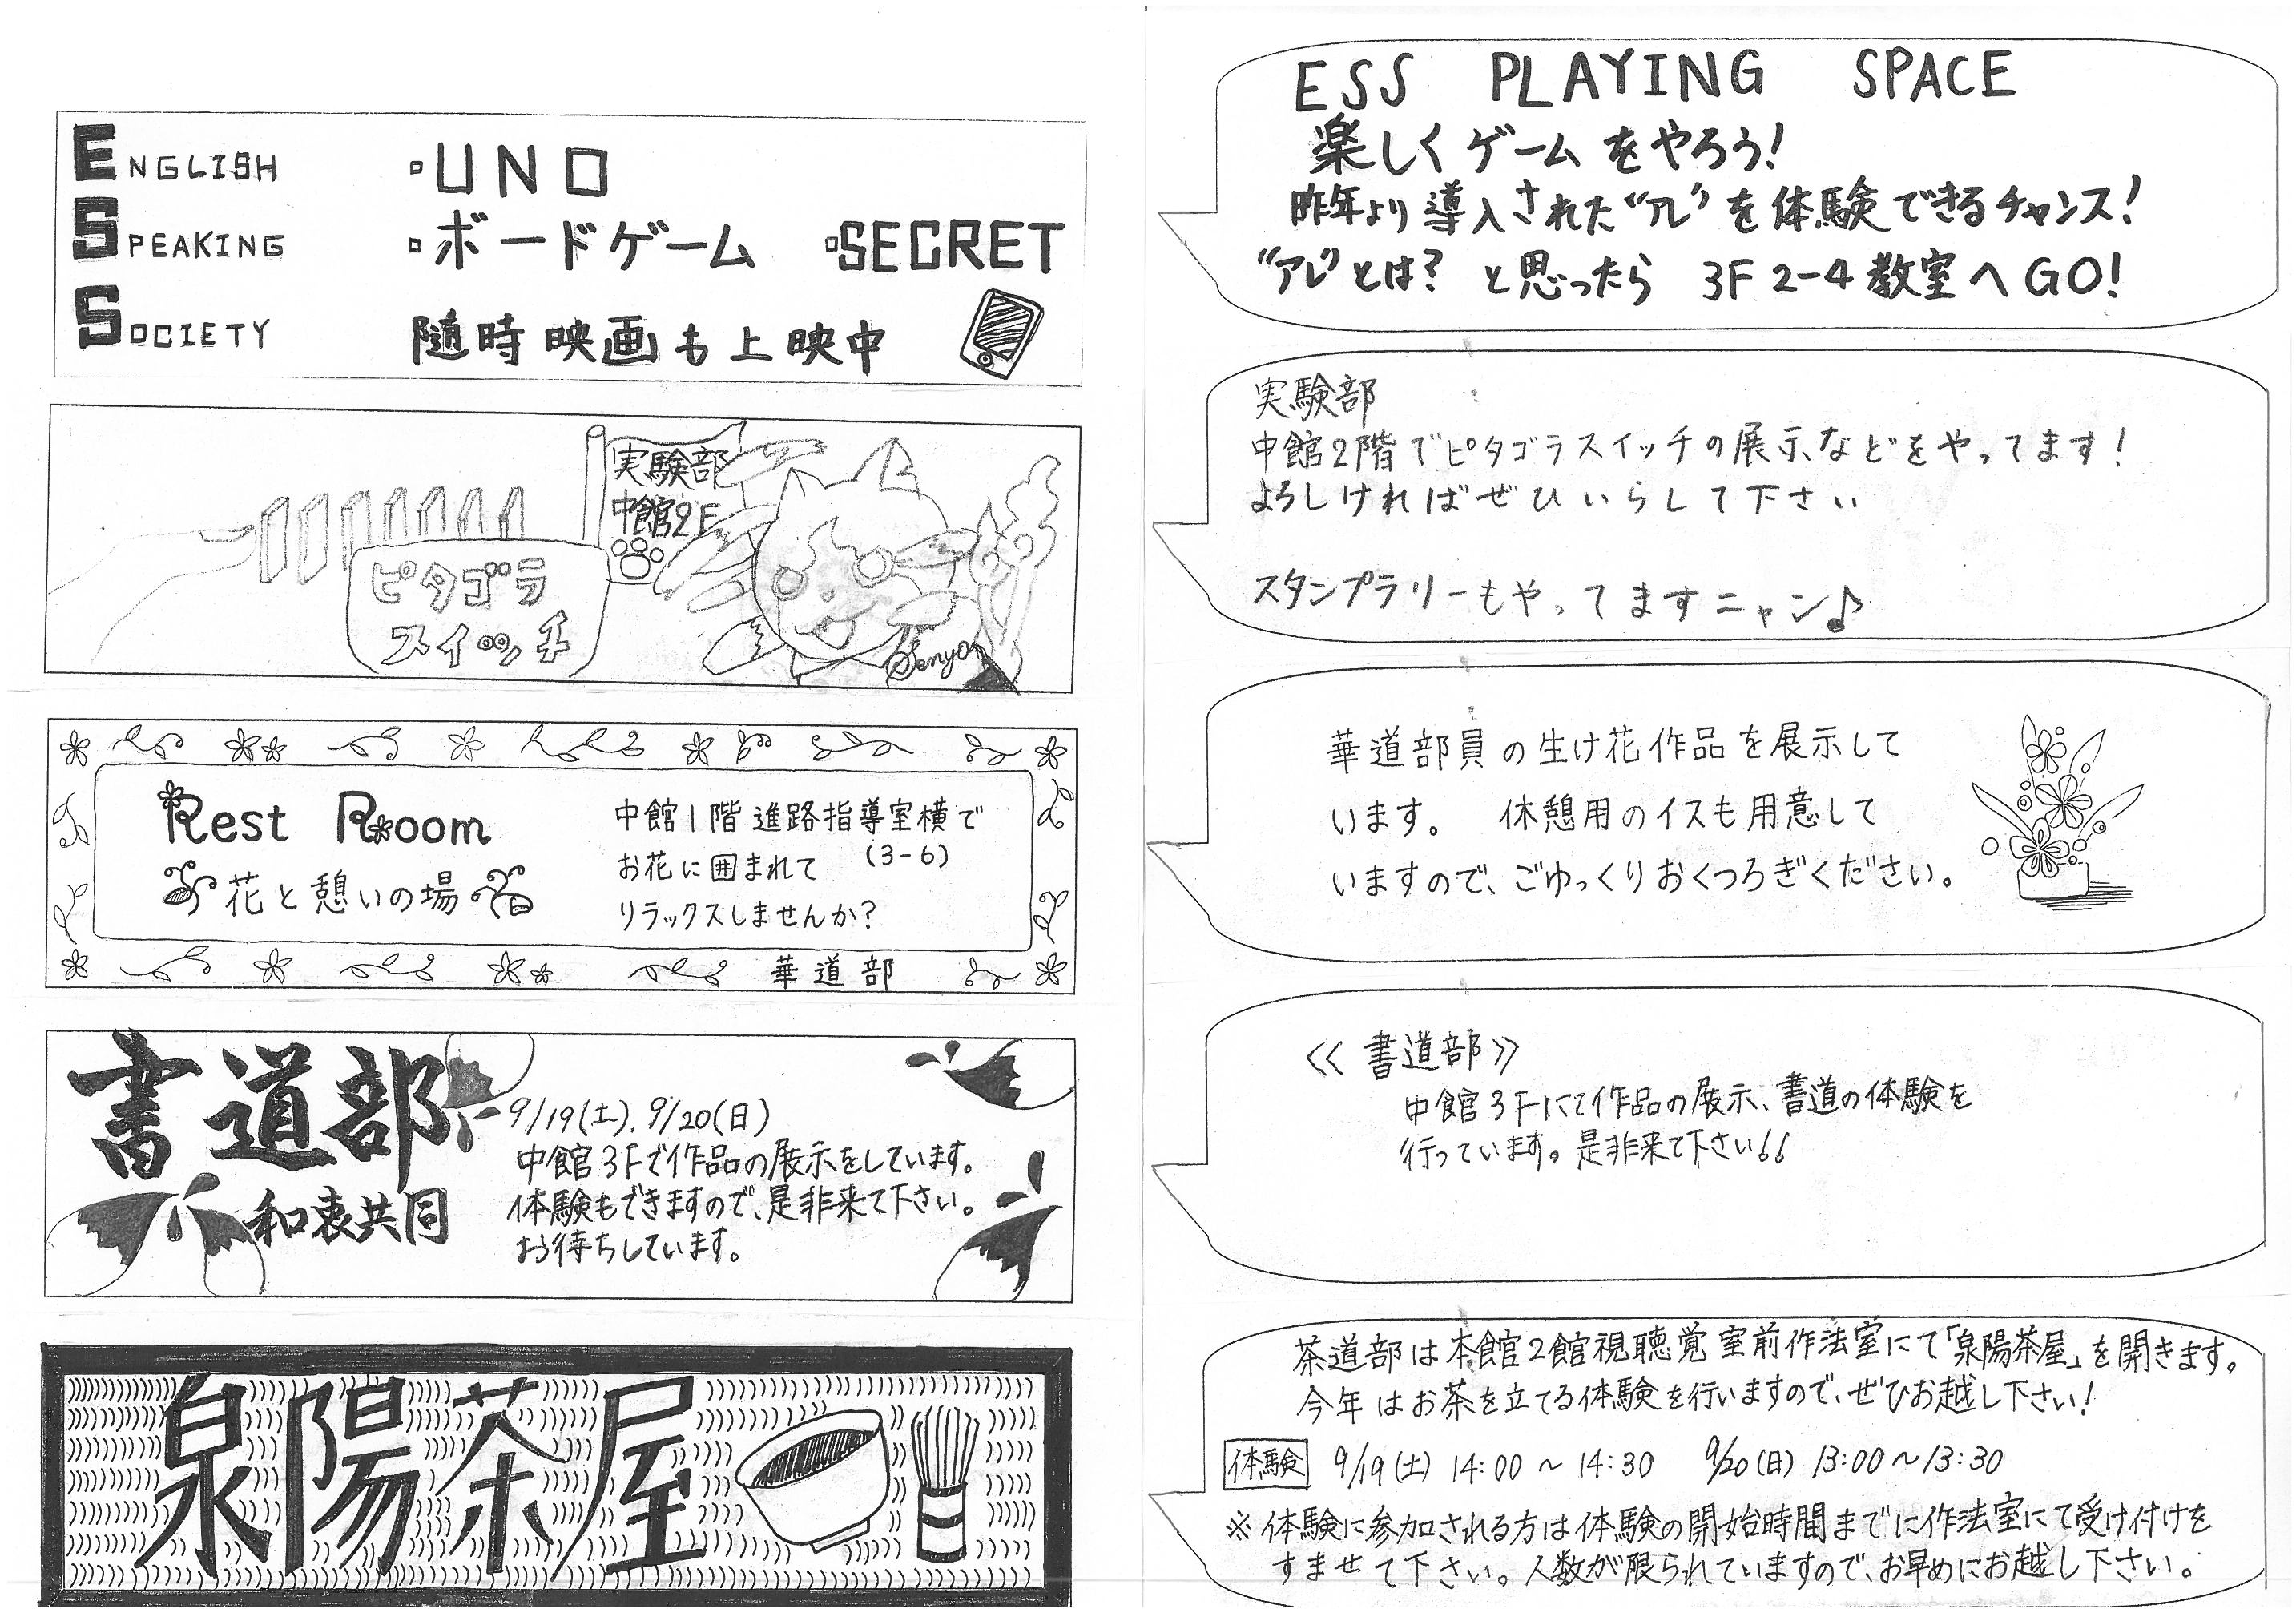 ENGLISH
SPEAKING
SOCIETY
・UNO
・ボードゲーム ・SECRET
随時映画も上映中
ESS PLAYING SPACE
楽しくゲームをやろう!
昨年より導入された“アレ”を体験できるチャンス!
“アレ”とは? と思ったら 3F 2-4教室へGO!
実験部
中館2F
ピタゴラ
スイッチ
Senyo
実験部
中館2階でピタゴラスイッチの展示などをやってます!
よろしければぜひいらして下さい
スタンプラリーもやってますニャン♪
Rest Room
花と憩いの場
中館1階進路指導室横で
(3-6)
お花に囲まれて
リラックスしませんか?
華道部
華道部員の生け花作品を展示して
います。 休憩用のイスも用意して
いますので、ごゆっくりおくつろぎください。
書道部
和衷共同
9/19(土).9/20(日)
中館3Fで作品の展示をしています。
体験もできますので、是非来て下さい。
お待ちしています。
≪書道部≫
中館3Fにて作品の展示、書道の体験を
行っています。是非来て下さい!!
泉陽茶屋
茶道部は本館2館視聴覚室前作法室にて「泉陽茶屋」を開きます。
今年はお茶を立てる体験を行いますので、ぜひお越し下さい!
体験 9/19(土) 14:00~14:30 9/20(日) 13:00~13:30
※体験に参加される方は体験の開始時間までに作法室にて受け付けを
すませて下さい。人数が限られていますので、お早めにお越し下さい。